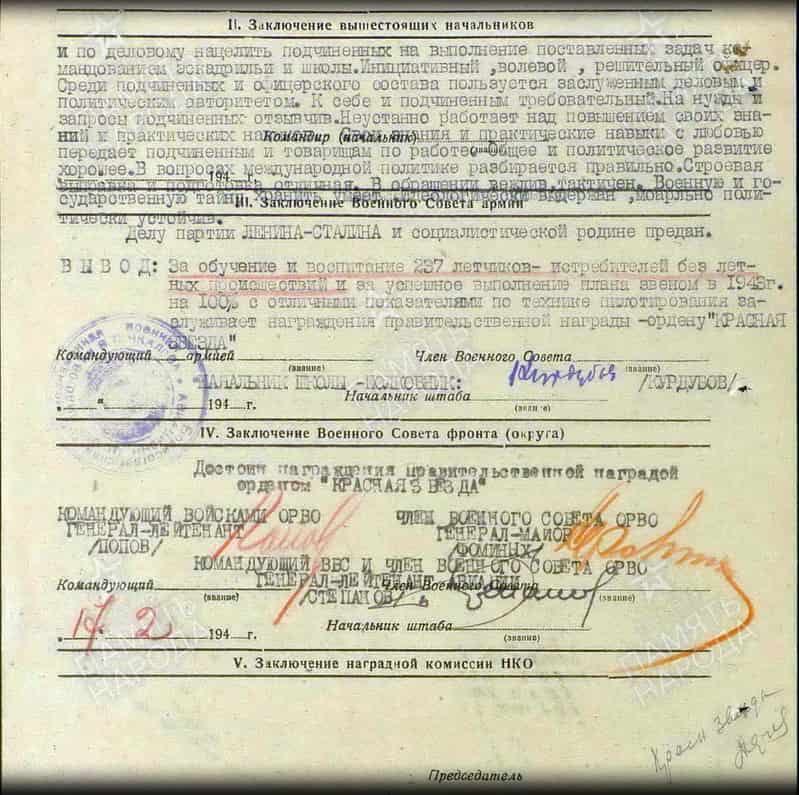 II. Заключение вышестоящих начальников
и по деловому нацелить подчиненных на выполнение поставленных задач ко-
мандованием эскадрильи и школы.Инициативный ,волевой , решительный офицер.
Среди подчиненных и офицерского состава пользуется заслуженным деловым и
политическим авторитетом. К себе и подчиненным требовательный.На нужды и
запросы подчиненных отзывчив.Неустанно работает над повышением своих зна-
ний и практических Свои знания и практические навыки с любовью
Командир (начальник)
передает подчиненным и товарищам по работе общее и политическое развитие
хорошее.В вопросах международной политике разбирается правильно.Строевая
194 г.
выправка и подготовка отличная. В обращении вежлив,тактичен. Военную и го-
сударственную тайну хранить умеет.Идеологически выдержан ,моарльно поли-
III. Заключение Военного Совета армии
тически устойчив.
Делу партии ЛЕНИНА-СТАЛИНА и социалистической родине предан.
ВЫВОД: За обучение и воспитание 237 летчиков- истребителей без лет-
ных происшествий и за успешное выполнение плана звеном в 1943г.
на 100% с отличными показателями по технике пилотирования за-
служивает награждения правительственной награды -ордену"КРАСНАЯ
ЗВЕЗДА"
Командующий армией Член Военного Совета
(звание) (звание)
НАЧАЛЬНИК ШКОЛЫ -ПОЛКОВНИК: Курдубов /КУРДУБОВ/
" " 194 г. Начальник штаба
(звание)
IV. Заключение Военного Совета фронта (округа)
Достоин награждения правительственной наградой
орденом "КРАСНАЯ ЗВЕЗДА"
КОМАНДУЮЩИЙ ВОЙСКАМИ ОРВО ЧЛЕН ВОЕННОГО СОВЕТА ОРВО
ГЕНЕРАЛ-ЛЕЙТЕНАНТ ГЕНЕРАЛ-МАЙОР
/ПОПОВ/ /ФОМИНЫХ/
КОМАНДУЮЩИЙ ВВС И ЧЛЕН ВОЕННОГО СОВЕТА ОРВО
ГЕНЕРАЛ-ЛЕЙТЕНАНТ АВИАЦИИ
Командующий Член Военного Совета
(звание) /СТЕПАНОВ (звание)
" " 2 194 г. Начальник штаба
(звание)
V. Заключение наградной комиссии НКО
Красн Звезды
Председатель
ПАМЯТЬ НАРОДА